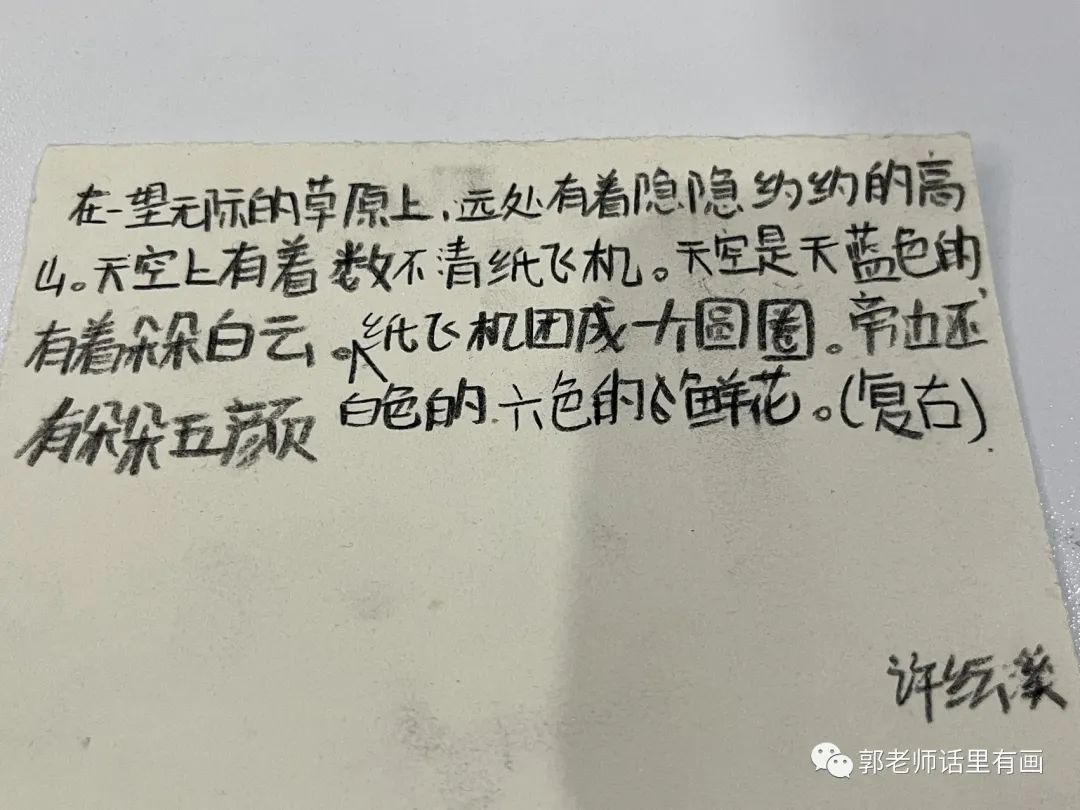 在一望无际的草原上，远处有着隐隐约约的高
山。天空上有着数不清纸飞机。天空是天蓝色的
有着朵朵白云。纸飞机团成一个圆圈。旁边还
白色的
有朵朵五颜六色的鲜花。(复古)
许纭溪
郭老师话里有画